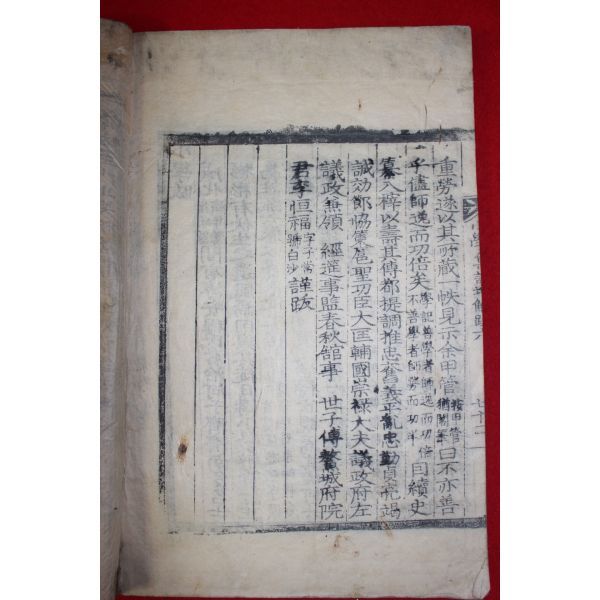 重勞遂以其所藏一帙見示余毌管按毌管猶閣筆曰不亦善
乎儘師逸而功倍矣學記善學者師逸而功倍不善學者師勞而功半因續史
纂入梓以壽其傳都提調推忠奮義平亂忠勤貞亮竭
誠効節協策扈聖功臣大匡輔國崇祿大夫議政府左
議政兼領 經筵事監春秋館事 世子傅鰲城府院
君李恒福字子常號白沙謹跋